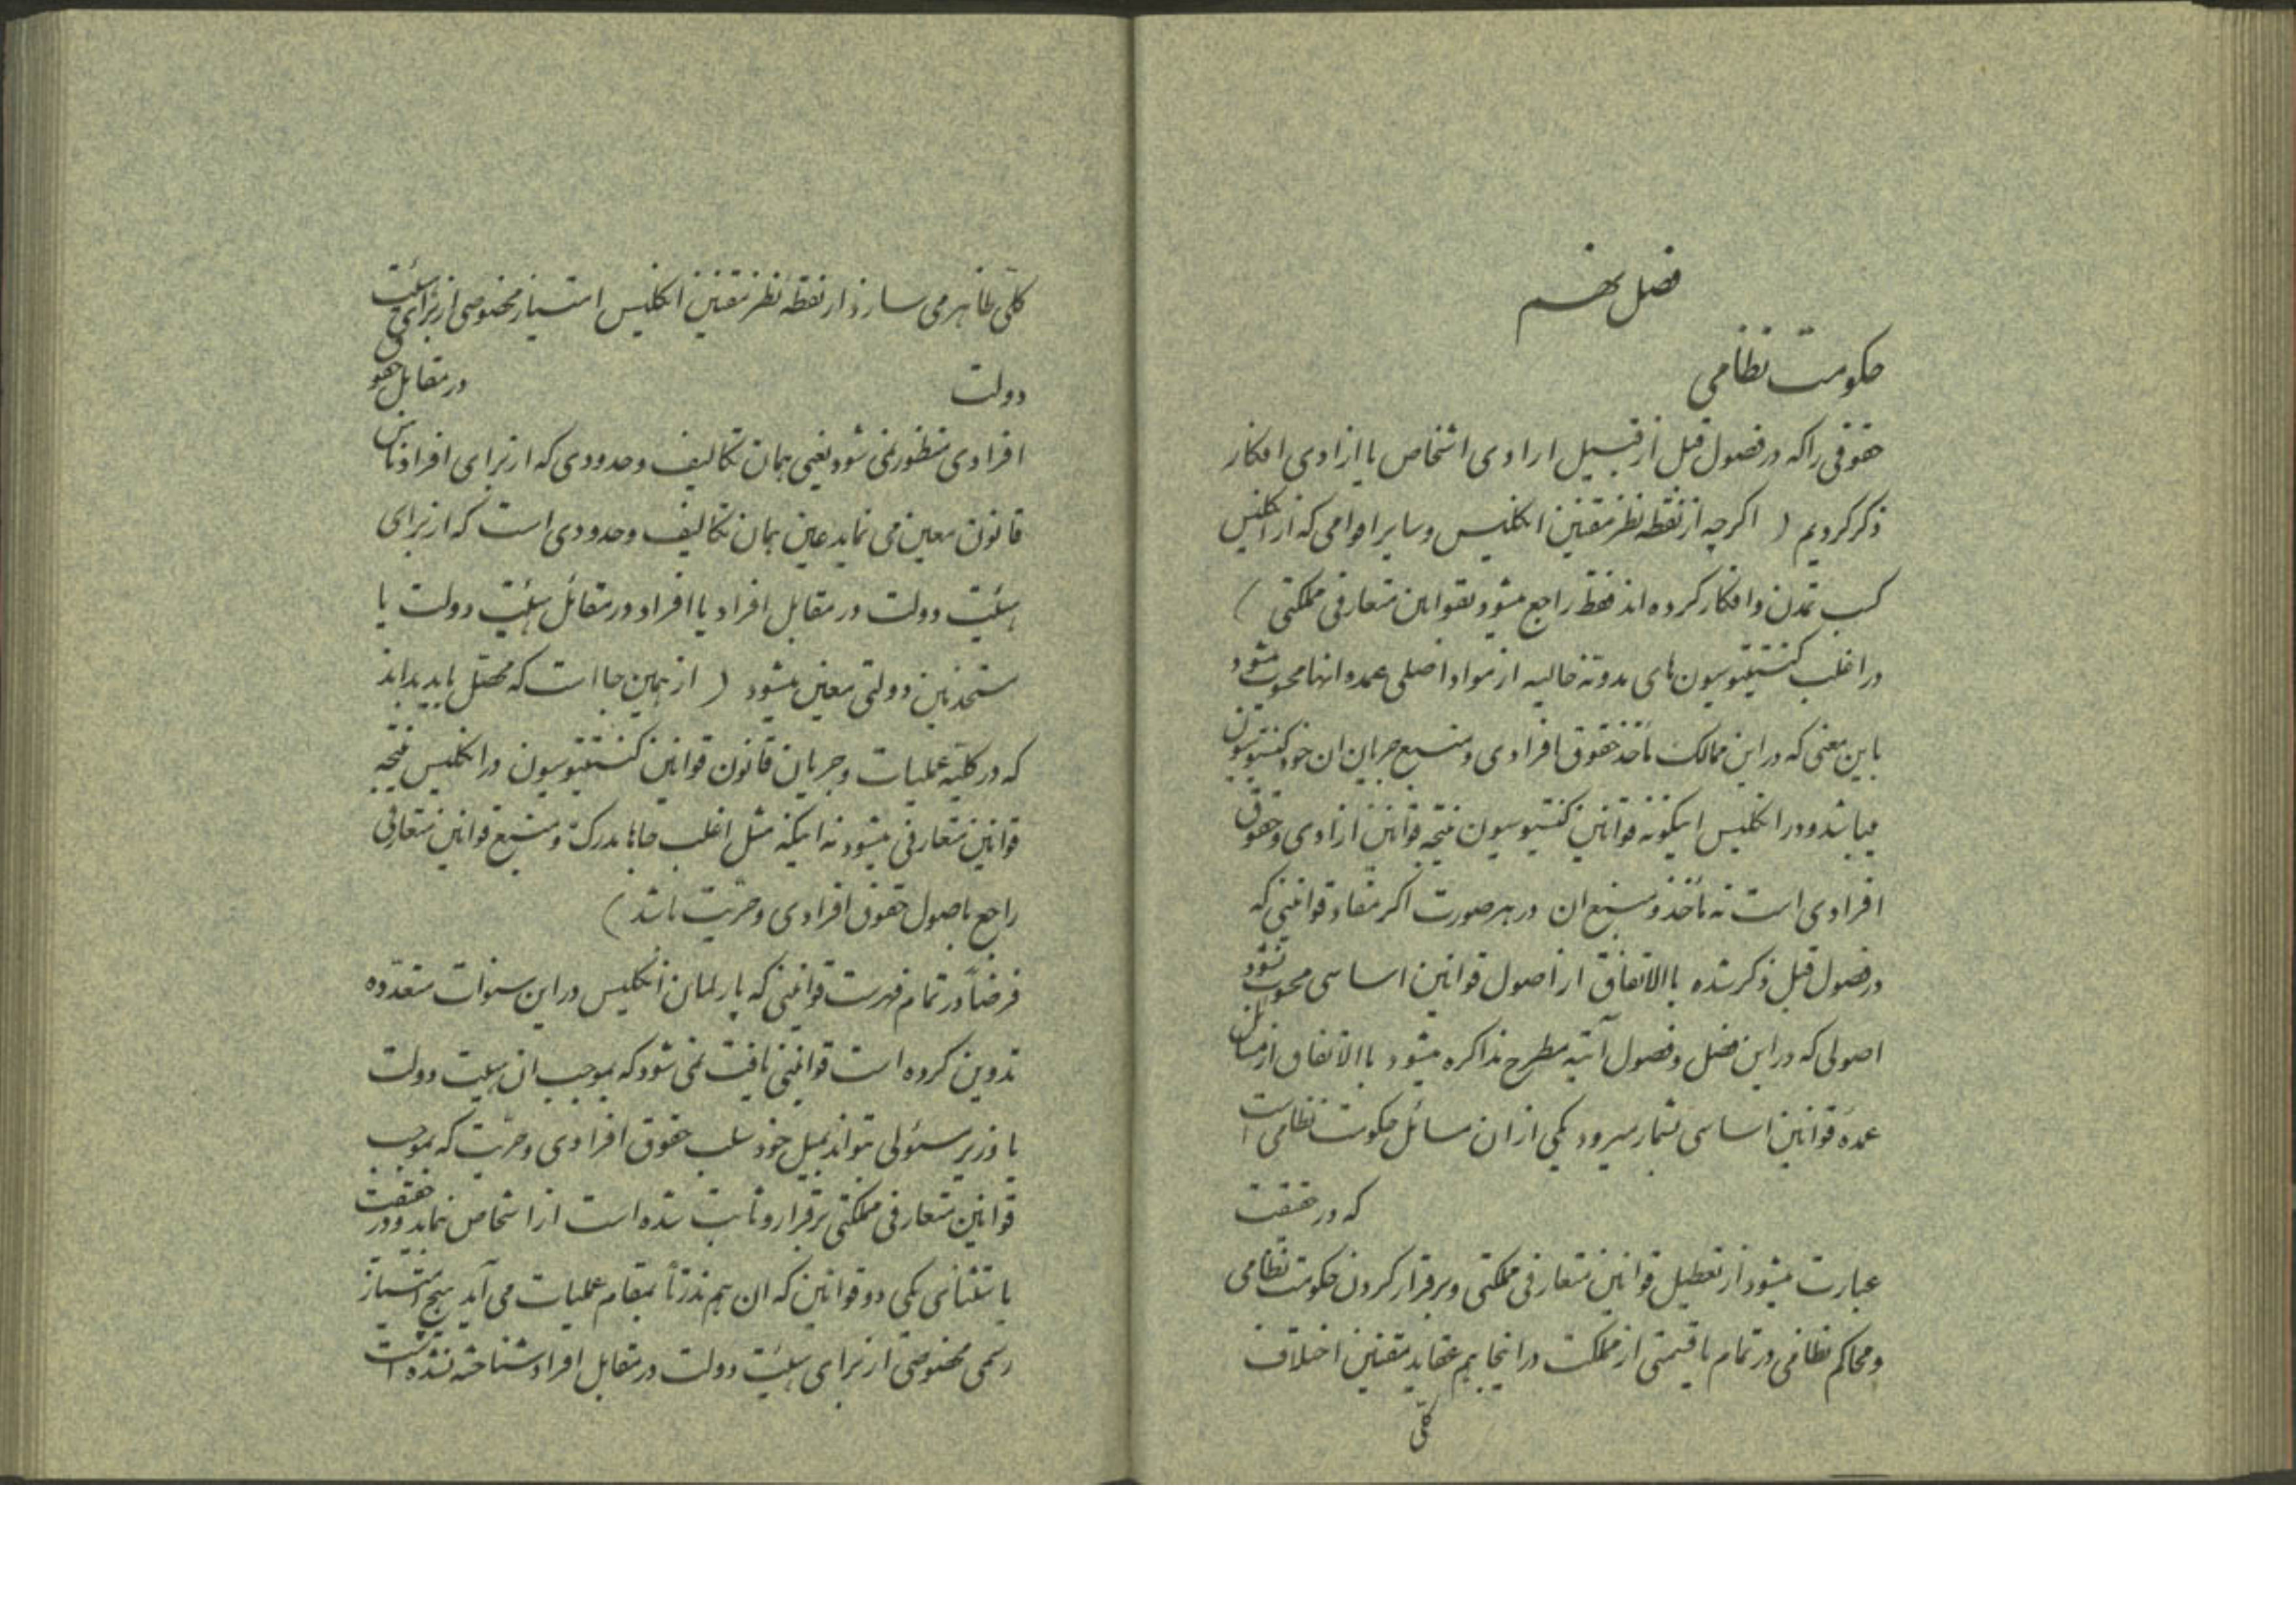 فصل نهم
حکومت نظامی
حقوقی را که در فصول قبل از قبیل ازادی اشخاص یا ازادی افکار
ذکر کردیم ( اکرچه از نقطه نظر مقننین انکلیس و سایر اقوامی که از انکلیس
کسب تمدن و افکار کرده اند فقط راجع میشود بقوانین متعارفی مملکتی )
در اغلب کنستیتوسیون های مدونه حالیه از مواد اصلی عمده انها محسوب میشود
باین معنی که در این ممالک مأخذ حقوق افرادی و منبع جریان ان خود کنستیتوسیون
میباشد و در انکلیس اینکونه قوانین کنستیتوسیون نتیجه قوانین ازادی و حقوق
افرادی است نه مأخذ و منبع ان در هر صورت اکر مفاد قوانینی که
در فصول قبل ذکر شده باالاتفاق از اصول قوانین اساسی محسوب نشود
اصولی که در این فصل و فصول آتیه مطرح مذاکره میشود باالاتفاق از مسائل
عمدهٔ قوانین اساسی بشمار میرود یکی از ان مسائل حکومت نظامی است
که در حقیقت
عبارت میشود از تعطیل قوانین متعارفی مملکتی و برقرار کردن حکومت نظامی
و محاکم نظامی در تمام یا قسمتی از مملکت در اینجا هم عقاید مقننین اختلاف
کلی
کلّی ظاهر می سازد از نقطه نظر مقننین انکلیس امتیاز مخصوصی از برای هیئت
دولت در مقابل حقوق
افرادی منظور نمی شود یعنی همان تکالیف و حدودی که از برای افراد ناس
قانون معین می نماید عین همان تکالیف و حدودی است که از برای
هیئت دولت در مقابل افراد یا افراد در مقابل هیئت دولت یا
مستخدمین دولتی معین میشود ( از همین جا است که محصل باید بداند
که در کلیّه عملیات و جریان قانون قوانین کنستیتوسیون در انکلیس نتیجه
قوانین متعارفی میشود نه اینکه مثل اغلب جاها مدرک و منبع قوانین متعارفی
راجع باصول حقوق افرادی و حرّیت باشد )
فرضاً در تمام فهرست قوانینی که پارلمان انکلیس در این سنوات متعدّده
تدوین کرده است قوانینی یافت نمی شود که بموجب ان هیئت دولت
یا وزیر مسئولی بتواند بمیل خود سلب حقوق افرادی و حرّیت که بموجب
قوانین متعارفی مملکتی برقرار و ثابت شده است از اشخاص نماید و در حقیقت
باستثنای یکی دو قوانین که ان هم ندرتاً بمقام عملیات می آید هیچ امتیاز
رسمی مخصوصی از برای هیئت دولت در مقابل افراد شناخته نشده است